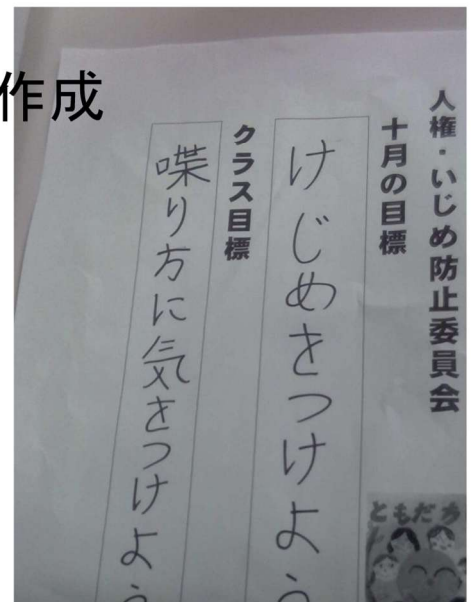 作成
人権・いじめ防止委員会
十月の目標
けじめをつけよう
クラス目標
喋り方に気をつけよう
ともだち